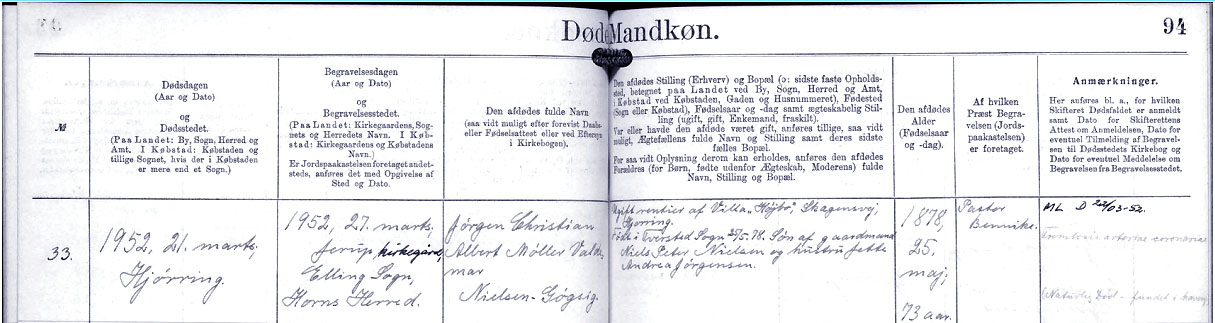 Døde Mandkøn.
94
№
Dødsdagen
(Aar og Dato)
og
Dødsstedet.
(Paa Landet: By, Sogn, Herred og
Amt. I Købstad: Købstaden og
tillige Sognet, hvis der i Købstaden
er mere end et Sogn.)
Begravelsesdagen
(Aar og Dato)
og
Begravelsesstedet.
(Paa Landet: Kirkegaardens, Sog-
nets og Herredets Navn. I Køb-
stad: Kirkegaardens og Købstadens
Navn.)
Er Jordspaakastelsen foretaget andet-
steds, anføres det med Opgivelse af
Sted og Dato.
Den afdødes fulde Navn
(saa vidt muligt efter forevist Daabs-
eller Fødselsattest eller ved Eftersyn
i Kirkebogen).
Den afdødes Stilling (Erhverv) og Bopæl (ɔ: sidste faste Opholds-
sted, betegnet paa Landet ved By, Sogn, Herred og Amt,
i Købstad ved Købstaden, Gaden og Husnummeret), Fødested
(Sogn eller Købstad), Fødselsaar og -dag samt ægteskabelig Stil-
ling (ugift, gift, Enkemand, fraskilt).
Var eller havde den afdøde været gift, anføres tillige, saa vidt
muligt, Ægtefællens fulde Navn og Stilling samt deres sidste
fælles Bopæl.
For saa vidt Oplysning derom kan erholdes, anføres den afdødes
Forældres (for Børn, fødte udenfor Ægteskab, Moderens) fulde
Navn, Stilling og Bopæl.
Den afdødes
Alder
(Fødselsaar
og -dag).
Af hvilken
Præst Begra-
velsen (Jords-
paakastelsen)
er foretaget.
Anmærkninger.
Her anføres bl. a., for hvilken
Skifteret Dødsfaldet er anmeldt
samt Dato for Skifterettens
Attest om Anmeldelsen, Dato for
eventuel Tilmelding af Begravel-
sen til Dødsstedets Kirkebog og
Dato for eventuel Meddelelse om
Begravelsen fra Begravelsesstedet.
33.
1952, 21. marts,
Hjørring.
1952, 27. marts.
Jerup kirkegård,
Elling Sogn,
Horns Herred.
Jørgen Christian
Albert Møller Valde-
mar
Nielsen-Gøgsig.
Ugift rentier af Villa "Højbo", Skagensvej,
Hjørring.
Født i Tversted Sogn 25/5.78. Søn af gaardmand
Niels Peter Nielsen og hustru Jette
Andrea Jørgensen.
1878,
25.
maj,
73 aar.
Pastor
Bennike.
ML D 22/03-52.
(Naturlig Død - fundet i haven)